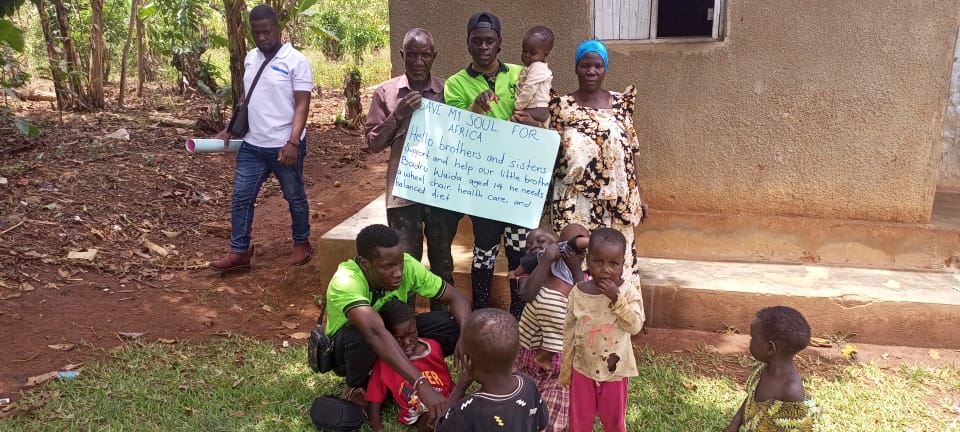 SAVE MY SOUL FOR
AFRICA
Hello brothers and sisters
support and help our little brother
Badru Waida aged 14. he needs
a wheel chair, health care, and
balanced diet